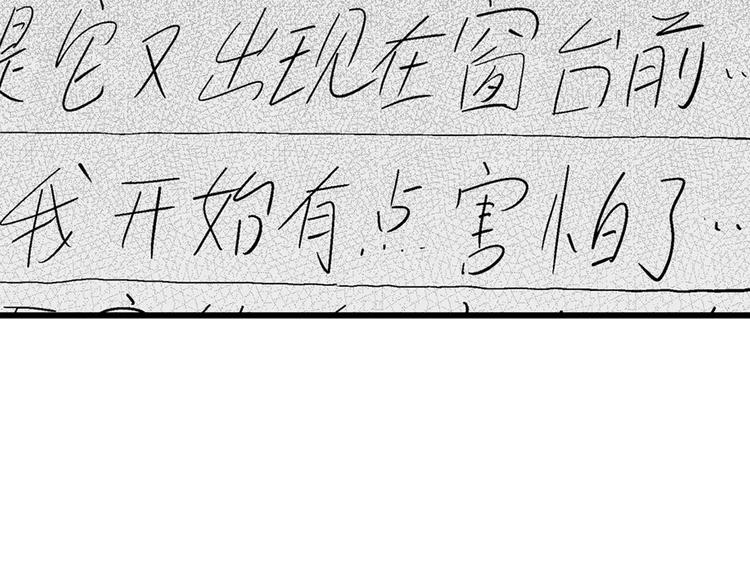 是它又出现在窗台前…
我开始有点害怕了…